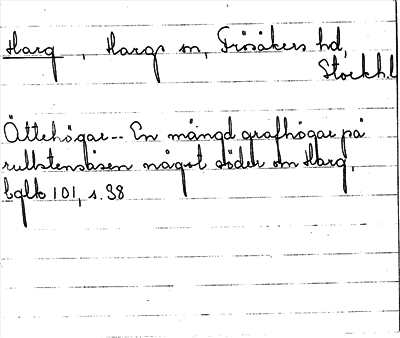 Harg, Hargs sn, Frösåkers hd,
Stockh.l
Ättehögar-- En mängd grafhögar på
rullstensåsen något söder om Harg,
bglb 101, s. 38